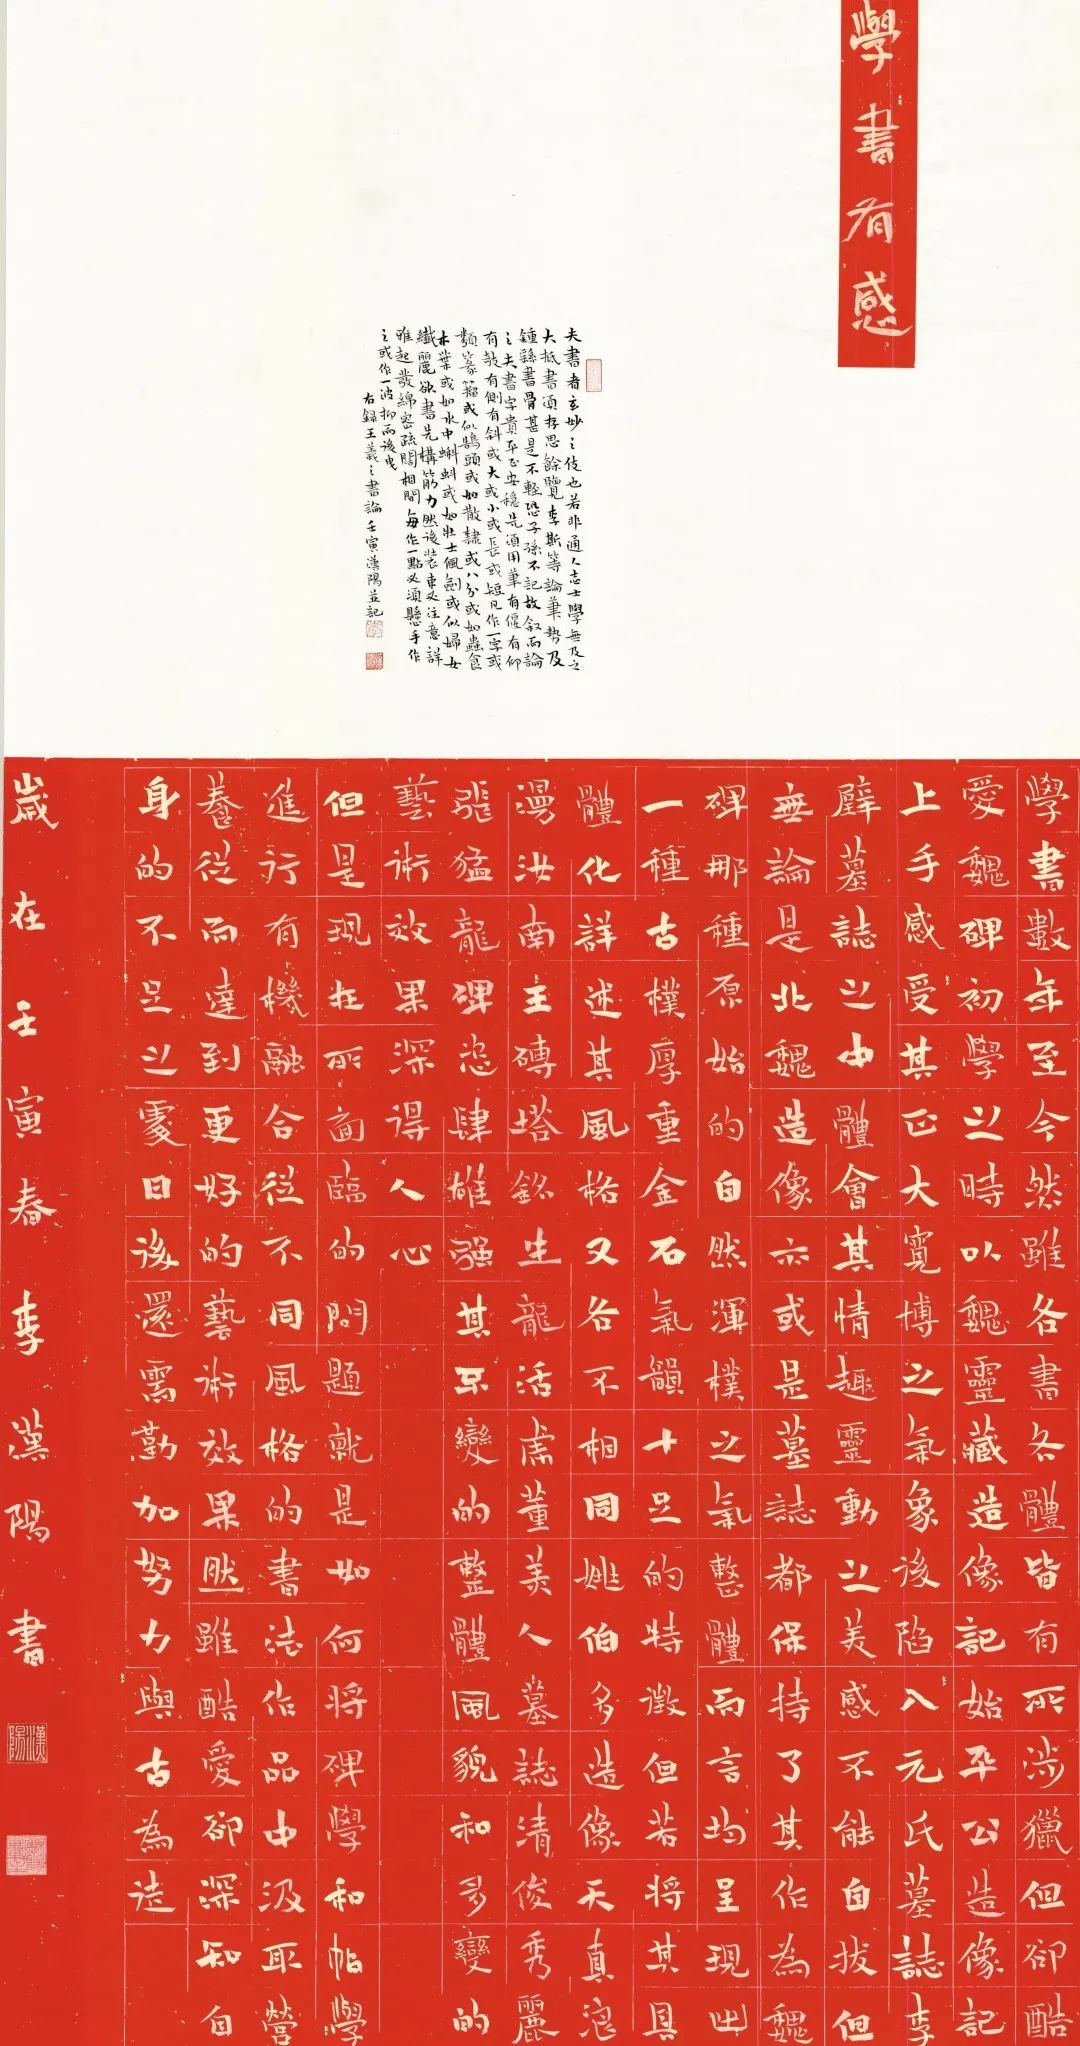 學書有感
夫書者玄妙之伎也若非通人志士學無及之
大抵書須存思餘覽李斯等論筆勢及
鍾繇書骨甚是不輕恐子孫不記故叙而論
之夫書字貴平正安穩先須用筆有偃有仰
有攲有側有斜或大或小或長或短凡作一字或
類篆籀或似鵠頭或如散隸或八分或如蟲食
木葉或如水中蝌蚪或如壯士佩劍或似婦女
纖麗欲書先構筋力然後裝束必注意詳
雅起發綿密疏闊相間每作一點必須懸手作
之或作一波抑而後曳
右録王羲之書論壬寅漢陽並記
學書數年至今然雖各書各體皆有所涉獵但卻酷
愛魏碑初學之時以魏靈藏造像記始平公造像記
上手感受其正大寬博之氣象後陷入元氏墓誌李
壁墓誌之中體會其情趣靈動之美感不能自拔但
無論是北魏造像亦或是墓誌都保持了其作為魏
碑那種原始的自然渾樸之氣整體而言均呈現出
一種古樸厚重金石氣韻十足的特徵但若將其具
體化詳述其風格又各不相同姚伯多造像天真浪
漫汝南王磚塔銘生龍活虎董美人墓誌清俊秀麗
張猛龍碑恣肆雄強其不變的整體風貌和多變的
藝術效果深得人心
但是現在所面臨的問題就是如何將碑學和帖學
進行有機融合從不同風格的書法作品中汲取營
養從而達到更好的藝術效果然雖酷愛卻深知自
身的不足之處日後還需勤加努力與古為徒
歲在壬寅春李漢陽書
漢陽